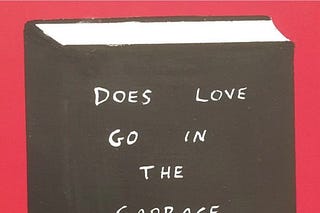 DOES LOVE
GO IN
THE
GARBAGE